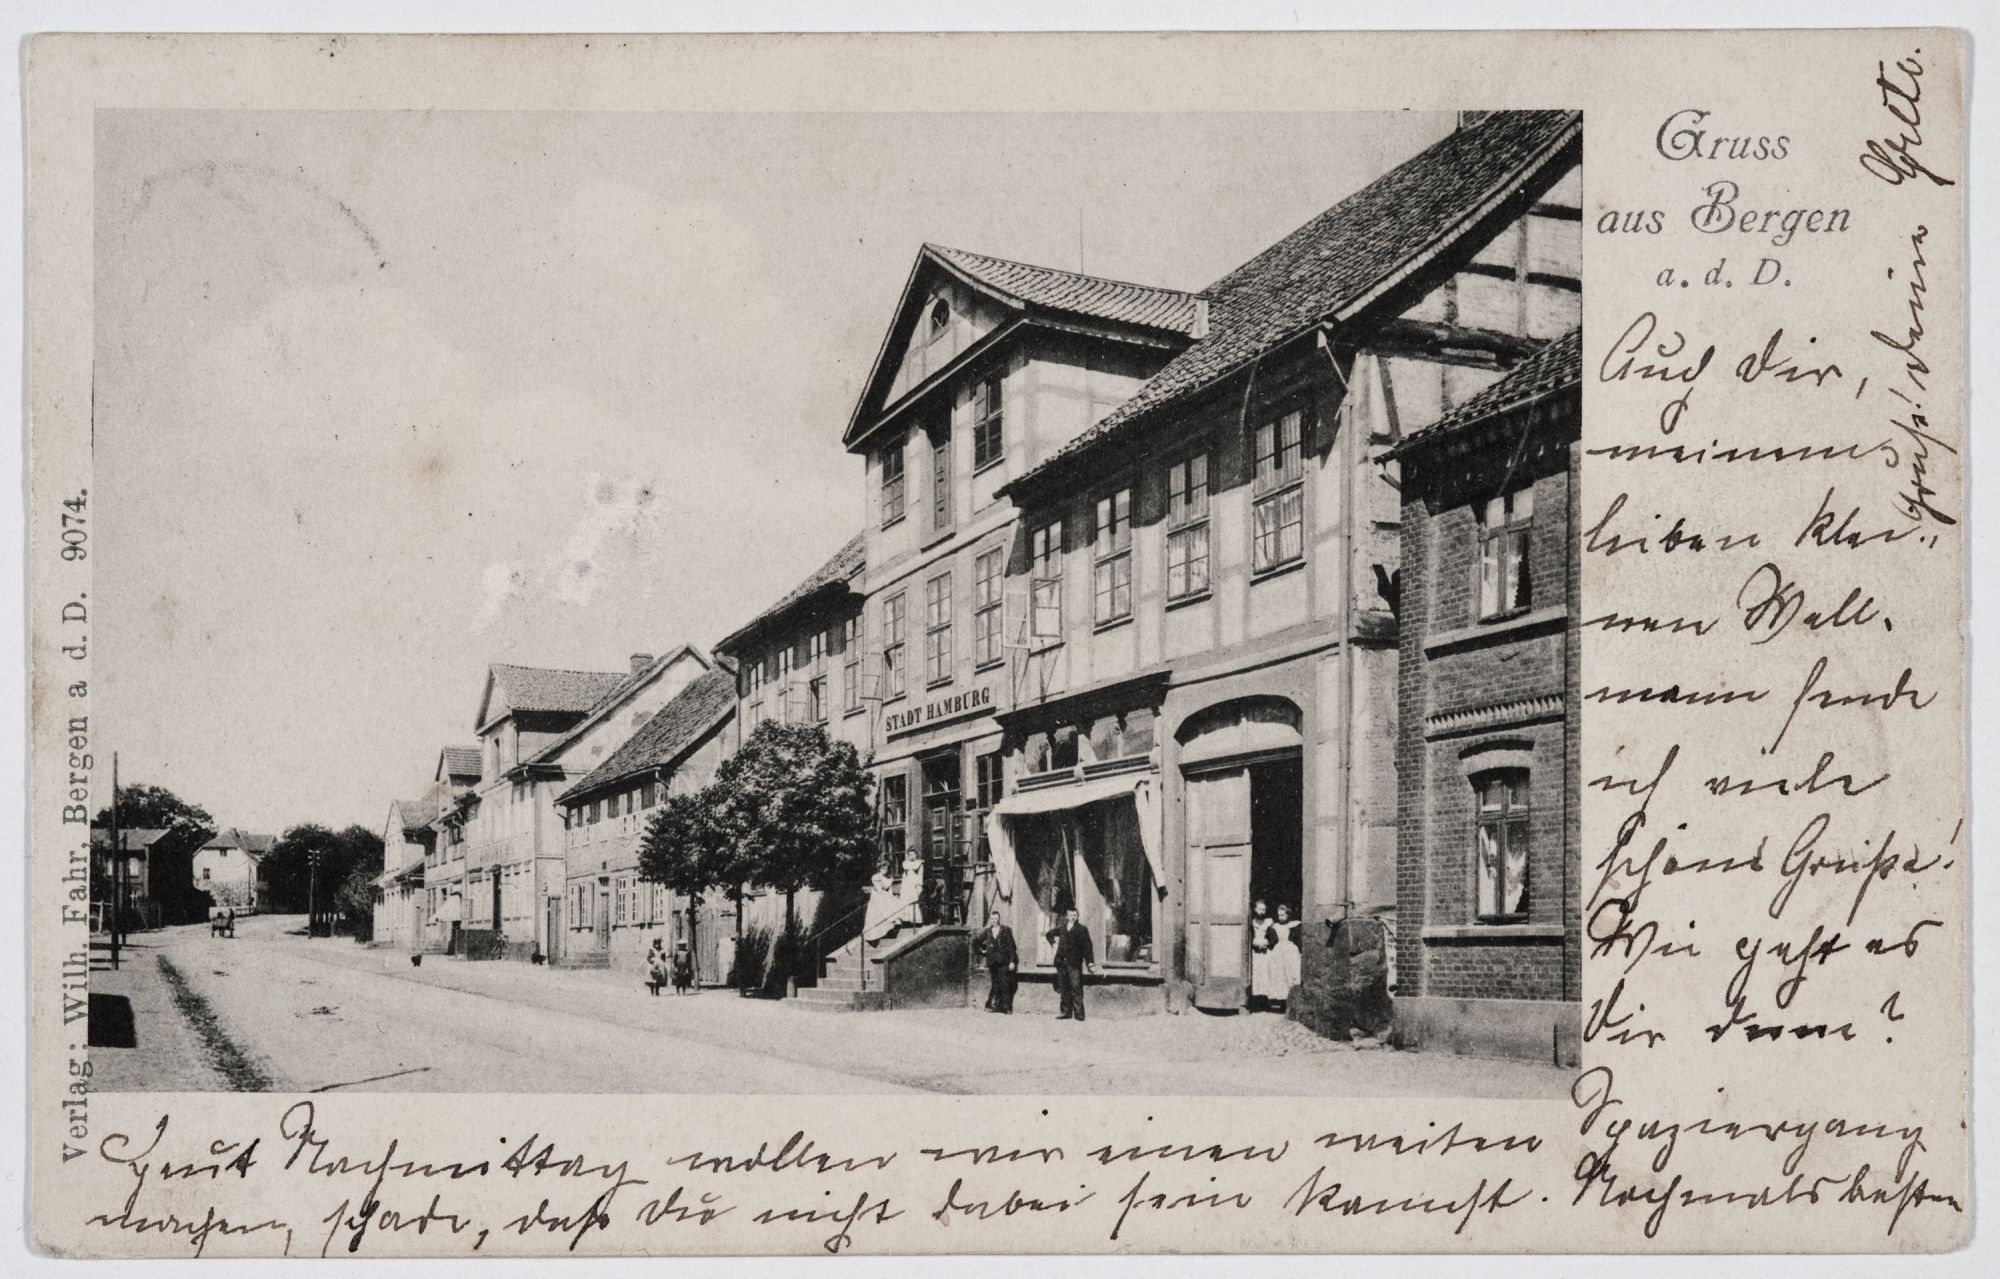 Gruss
aus Bergen
a. d. D.
Auch Dir,
meinem
lieben klei-
nen Well-
mann sende
ich viele
schöne Grüße!
Wie geht es
Dir denn?
Heut Nachmittag wollen wir einen weiten Spaziergang
machen, schade, daß Du nicht dabei sein kannst. Nochmals besten
Gruß! Deine
STADT HAMBURG
Verlag: Wilh. Fahr, Bergen a d. D. 9074.